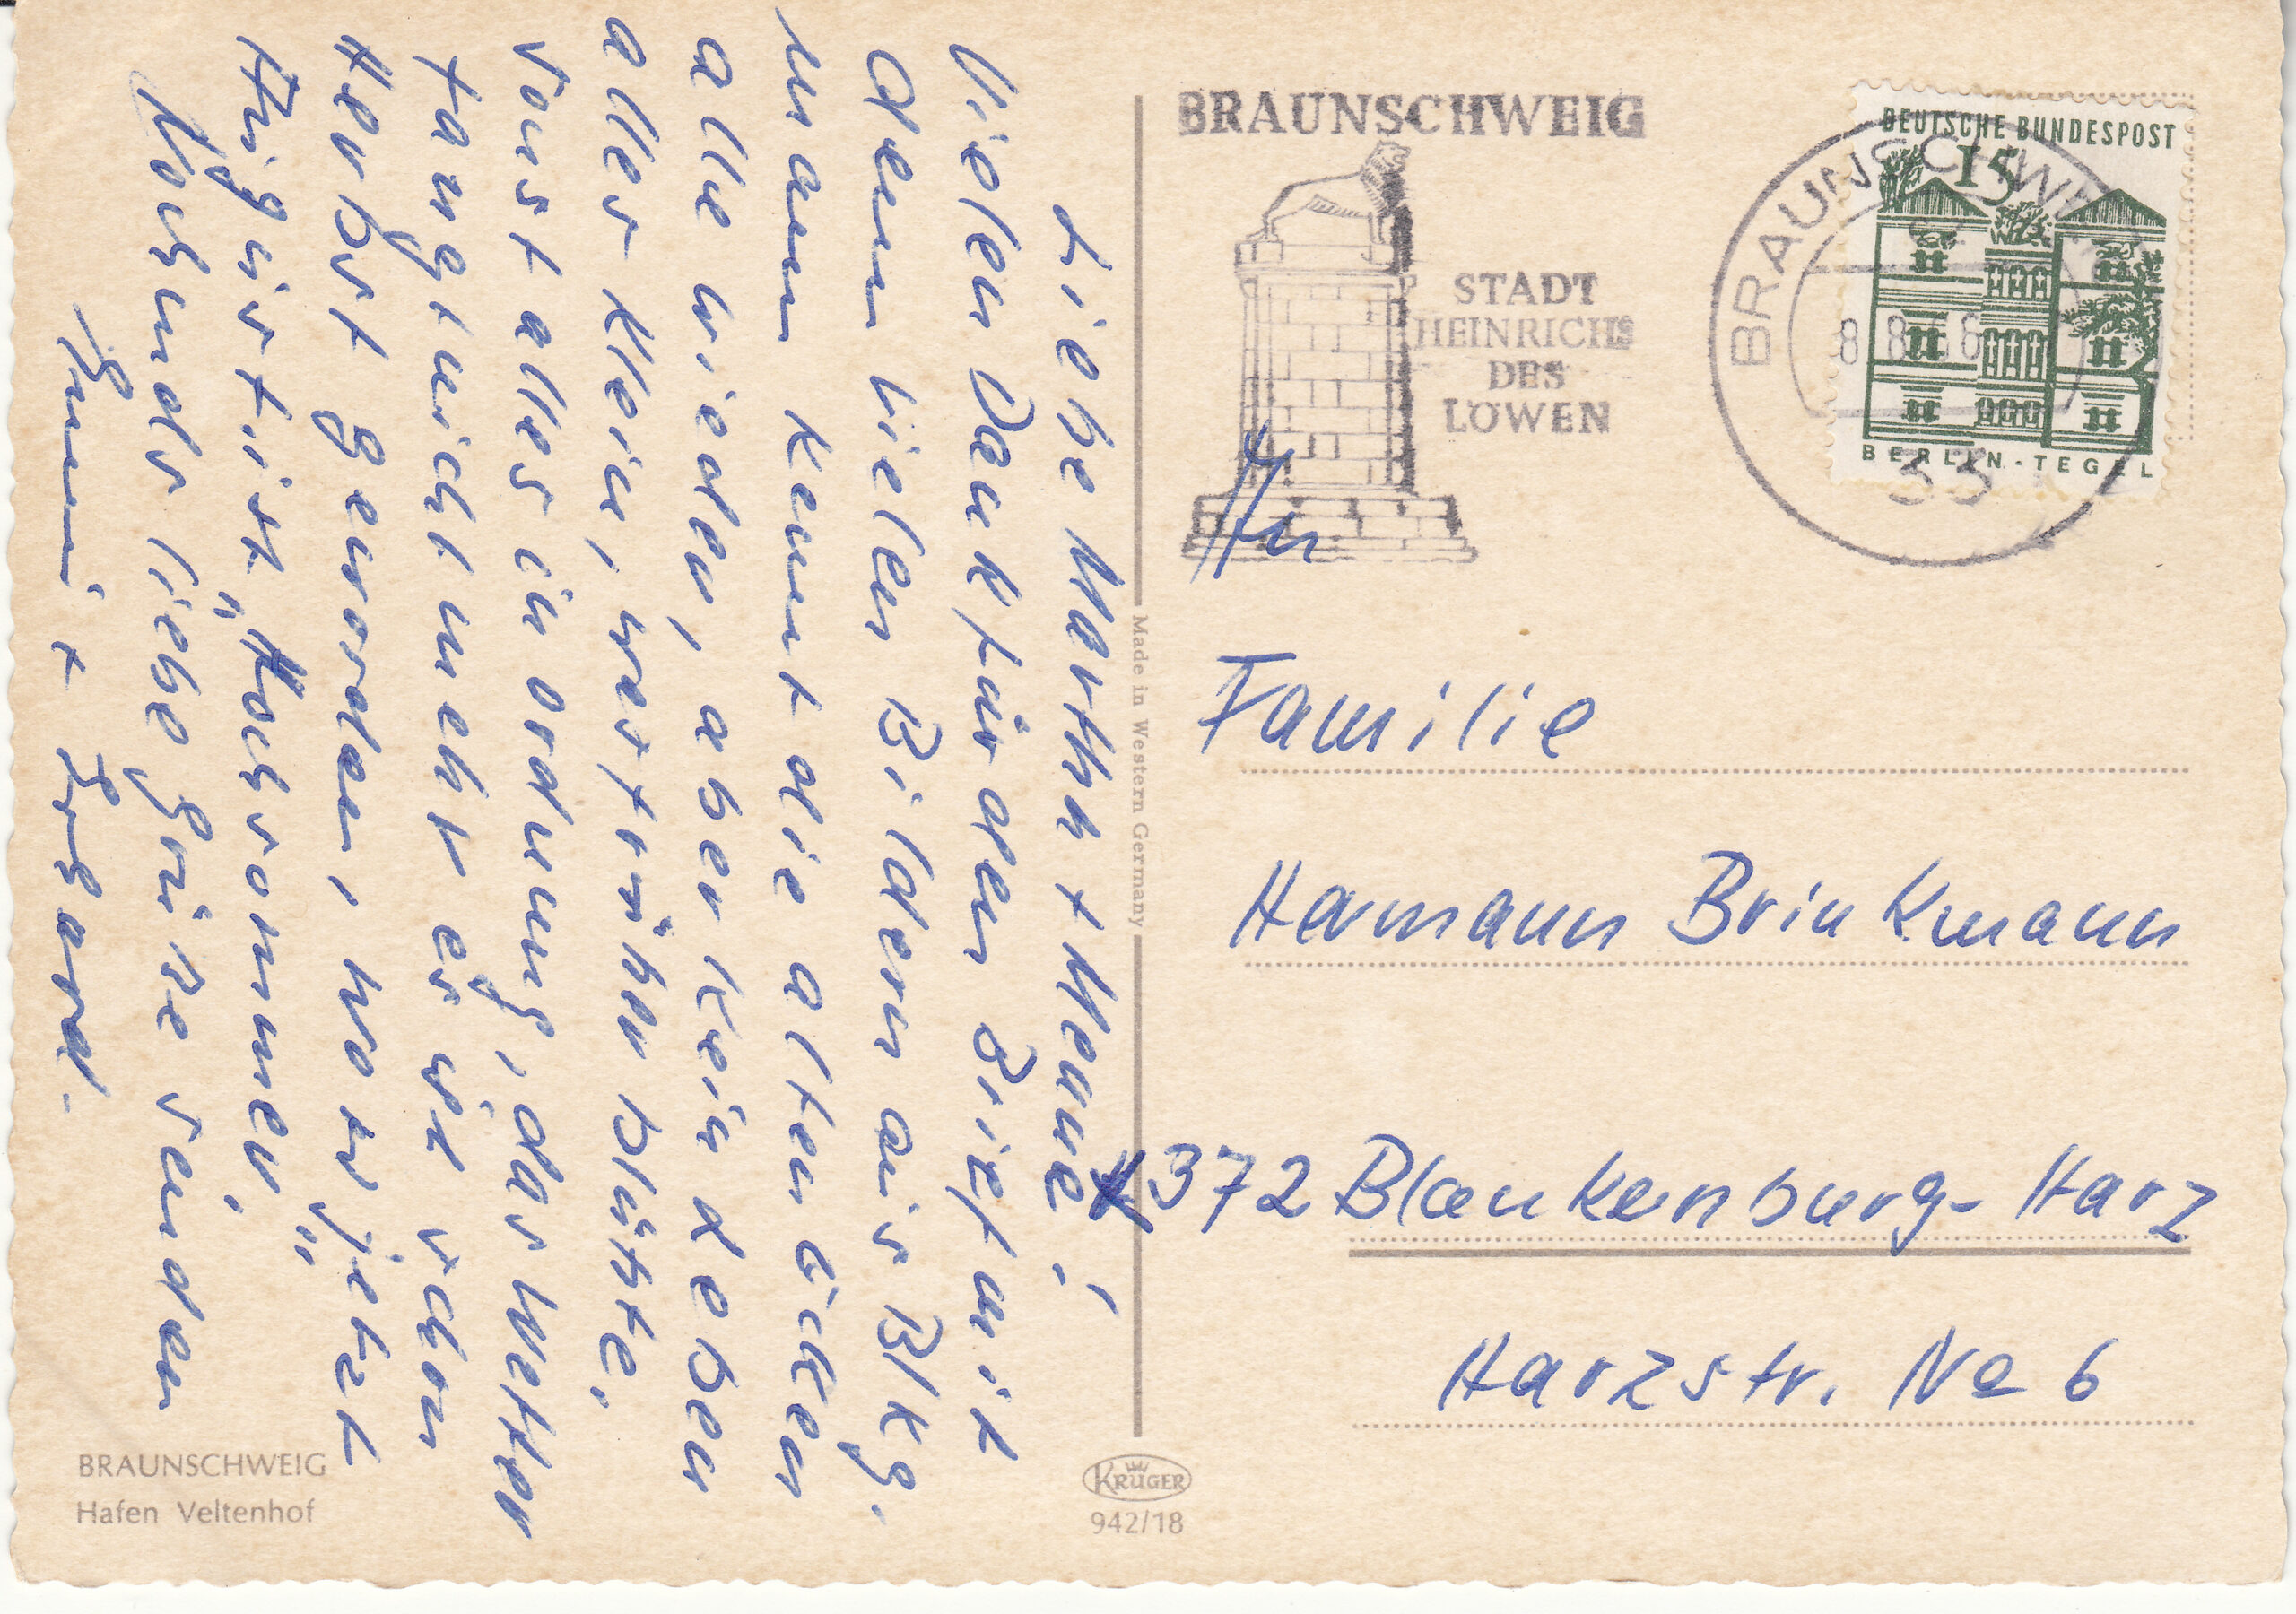 Liebe Martha + Meane!
Vielen Dank für den Brief mit
den vielen Bildern aus Blkg.
man kennt die alten Ecken
alle wieder, aber kein Leben
alles klein, was früher blühte.
Sonst alles in Ordnung, das Wetter
taugt nicht mehr es ist schon
Herbst geworden, wo ist jetzt
August ist "Hochsommer."
Nochmals liebe Grüße senden
+ Erhard.
BRAUNSCHWEIG
Hafen Veltenhof
Made in Western Germany
KRÜGER
942/18
BRAUNSCHWEIG
STADT
HEINRICHS
DES
LÖWEN
DEUTSCHE BUNDESPOST
15
BERLIN-TEGEL
BRAUNSCHWEIG
33
An
Familie
Hermann Brinkmann
372 Blankenburg-Harz
Harzstr. No 6